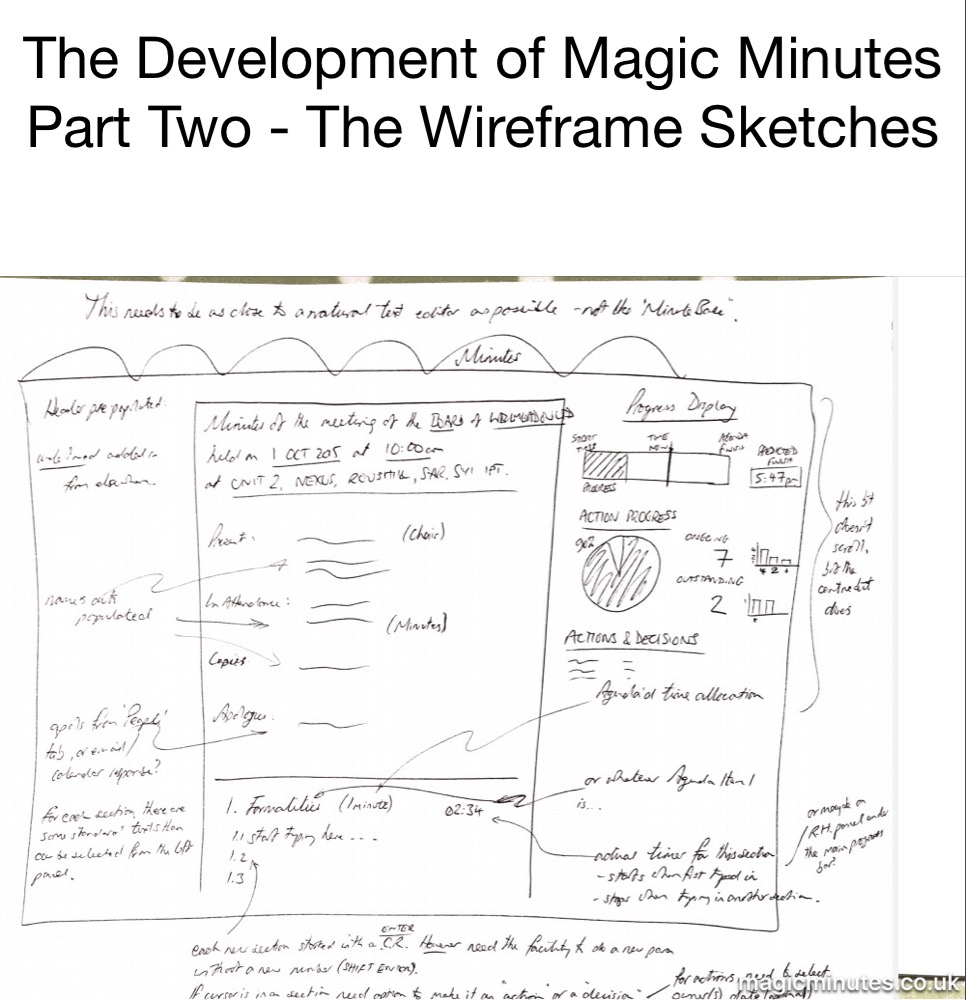 The Development of Magic Minutes
Part Two - The Wireframe Sketches
This needs to be as close to a natural text editor as possible - not the "Minute Base".
Minutes
Header pre populated.
added in
from elsewhere.
Minutes of the meeting of the BOARD of
held on 1 OCT 205 at 10:00am
at UNIT 2, NEXUS,
Present: (Chair)
In Attendance:
(Minutes)
Copies
Apologies:
names auto
populated
apols from 'People'
tab, or email/
calendar response?
For each section, there are
some 'standard' texts that
can be selected from the left
panel.
1. Formalities (1 minute) 02:34
1.1 start typing here ...
1.2
1.3
Progress Display
START TIME
TIME NOW
AGENDA FINISH
PREDICTED FINISH
5:47pm
PROGRESS
ACTION PROGRESS
ONGOING
7
OUTSTANDING
2
ACTIONS & DECISIONS
this bit
doesn't
scroll,
but the
centre bit
does
Agenda'd time allocation
or whatever Agenda Item 1
is...
actual timer for this section
- starts when first typed in
- stops when typing in another section.
or maybe on
R.H. panel under
the main progress
bar?
ENTER
each new section started with a C.R. However need the facility to do a new para
without a new number (SHIFT ENTER).
If cursor is in a section need option to make it an "action" or a "decision"
for actions, need to select
owner(s) date
magicminutes.co.uk